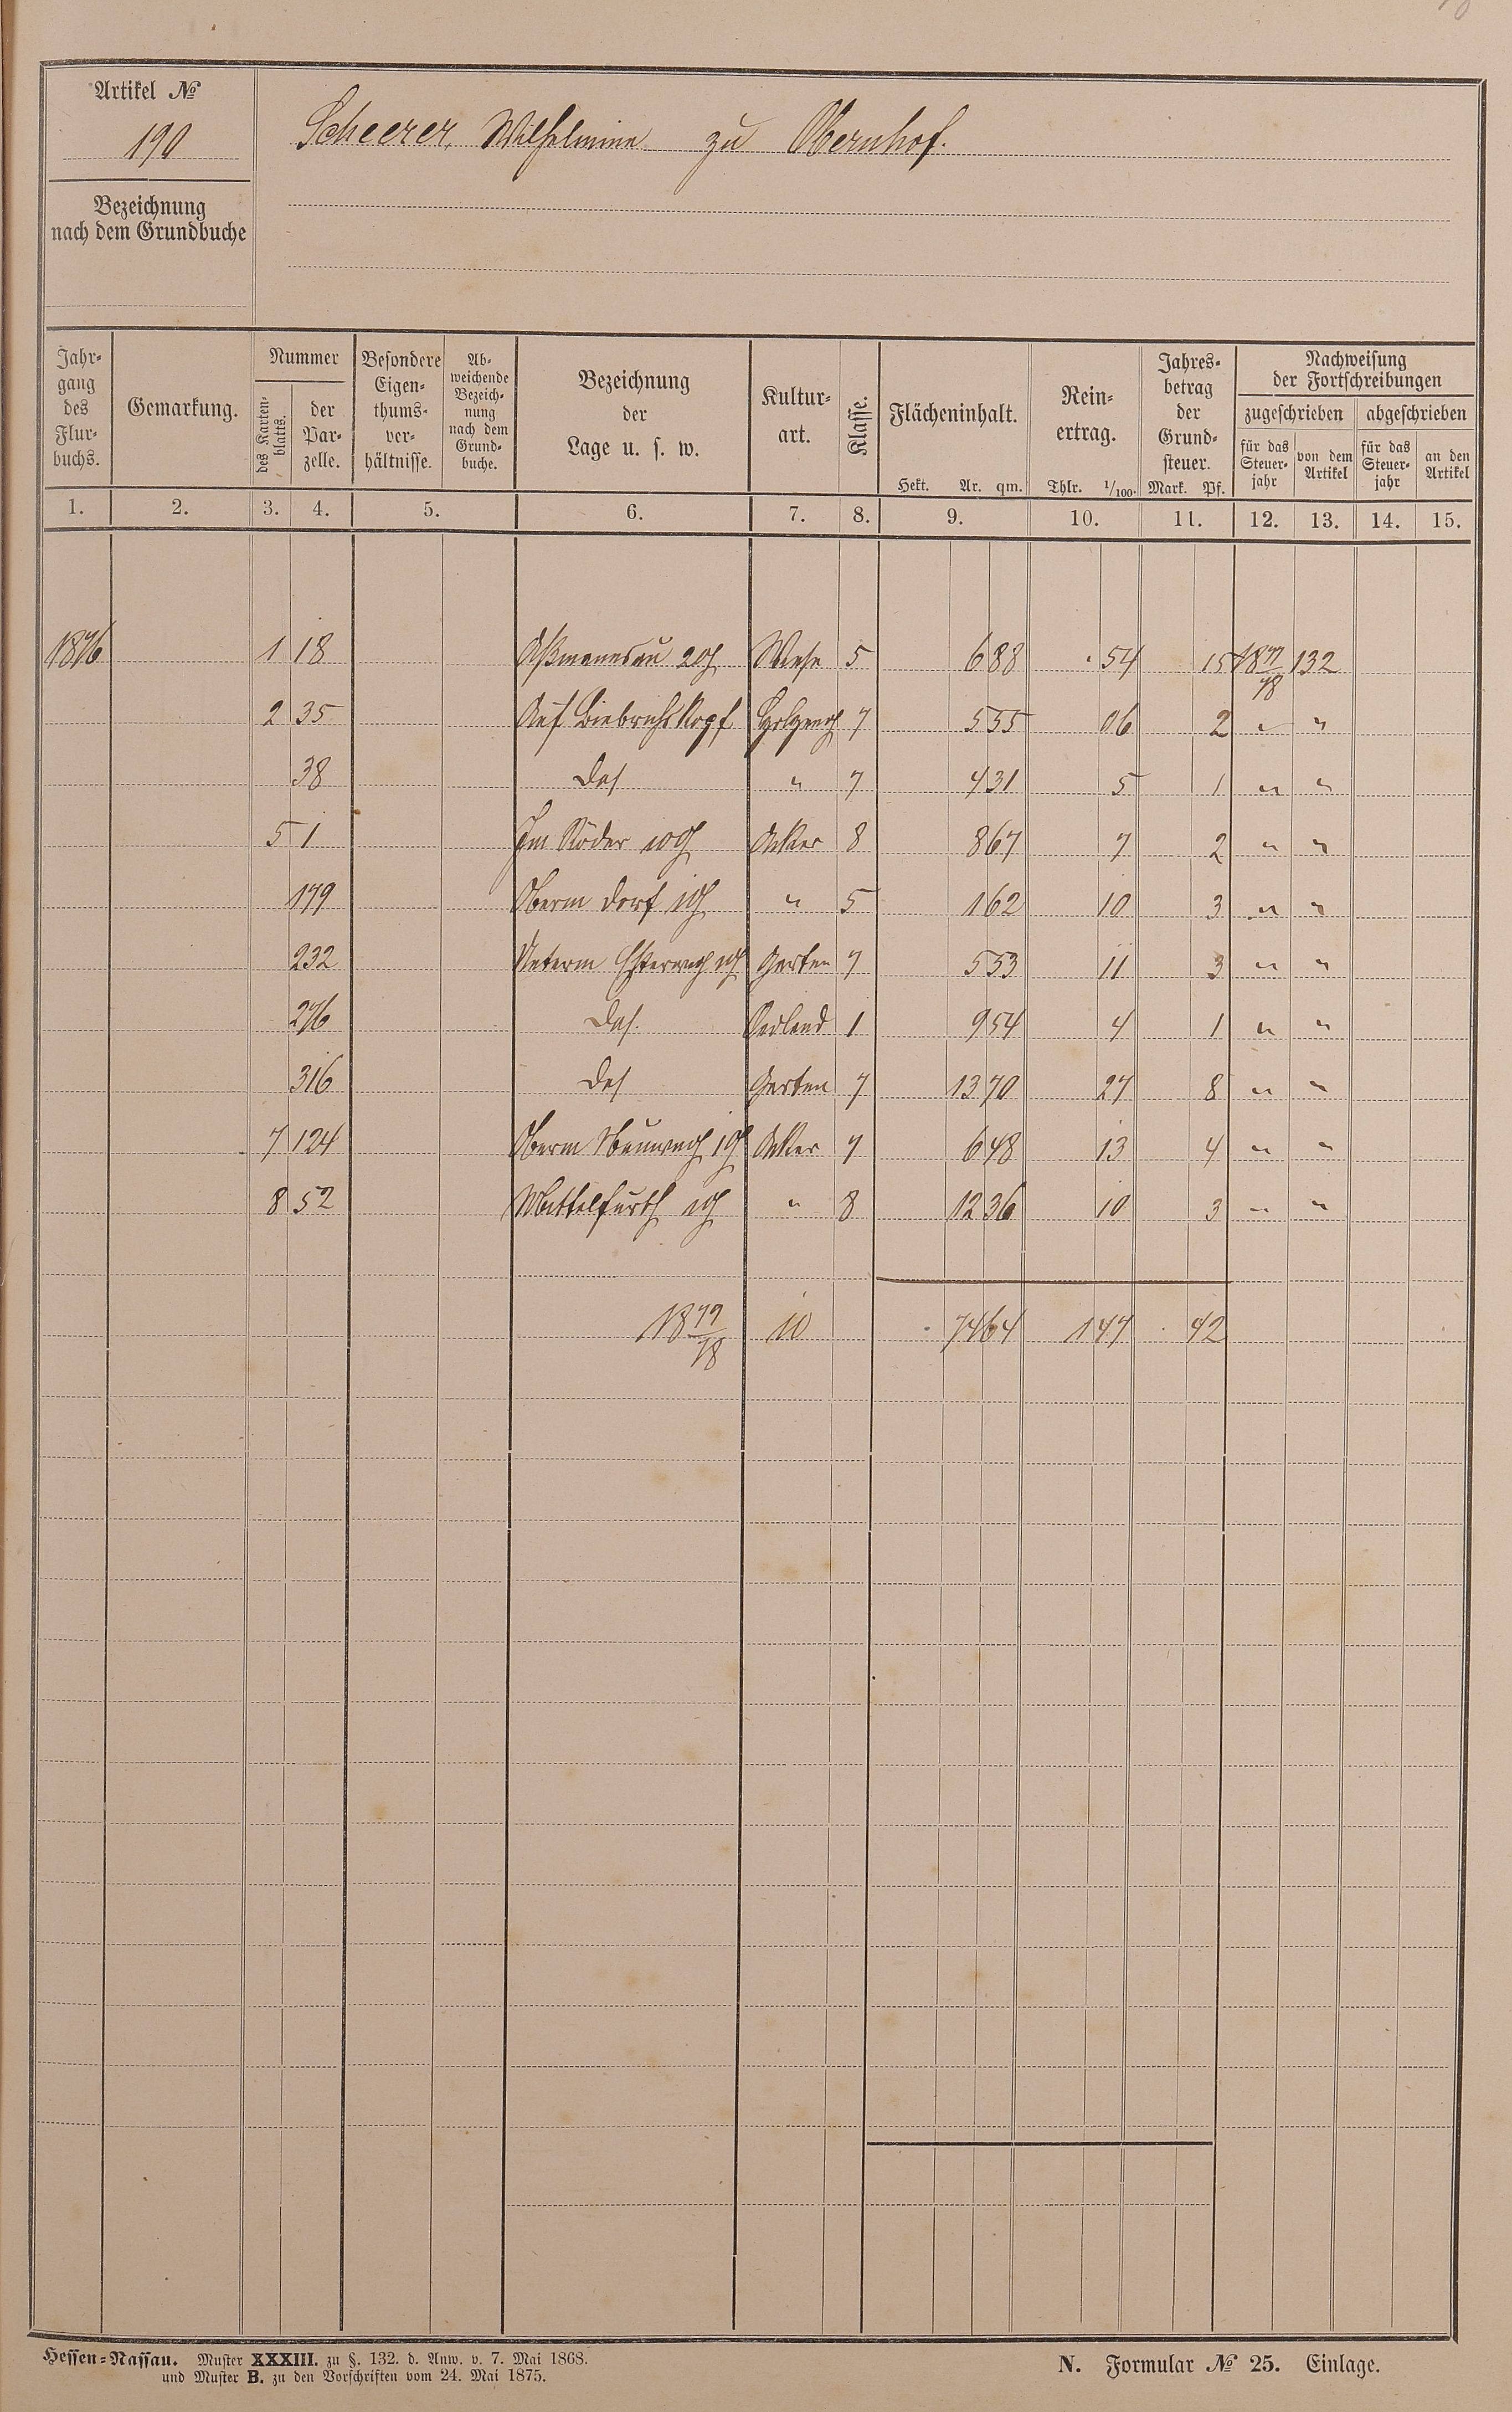 Artikel No
190
Scheerer, Wilhelmine zu Obernhof.
Bezeichnung
nach dem Grundbuche
Jahr-
gang
des
Flur-
buchs.
Gemarkung.
Nummer
des Karten-
blatts.
der
Par-
zelle.
Besondere
Eigen-
thums-
ver-
hältnisse.
Ab-
weichende
Bezeich-
nung
nach dem
Grund-
buche.
Bezeichnung
der
Lage u. s. w.
Kultur-
art.
Klasse.
Flächeninhalt.
Hekt. Ar. qm.
Rein-
ertrag.
Thlr. 1/100.
Jahres-
betrag
der
Grund-
steuer.
Mark. Pf.
Nachweisung
der Fortschreibungen
zugeschrieben abgeschrieben
für das
Steuer-
jahr
von dem
Artikel
für das
Steuer-
jahr
an den
Artikel
1. 2. 3. 4. 5. 6. 7. 8. 9. 10. 11. 12. 13. 14. 15.
1876 1 18 Aßmannsau Wiese 5 6 88 54 15 1877/78 132
2 35 Auf 7 5 55 06 2 " "
38 das " 7 4 31 5 1 " "
5 1 Im Röder Acker 8 8 67 7 2 " "
179 Oberm Dorf " 5 1 62 10 3 " "
232 Unterm Garten 7 5 53 11 3 " "
276 das. Oedland 1 9 54 4 1 " "
316 das Garten 7 13 70 27 8 " "
7 124 Oberm Acker 7 6 48 13 4 " "
8 52 Mittelfurth " 8 12 36 10 3 " "
1877/78 10 74 64 1 47 42
Hessen-Nassau. Muster XXXIII. zu §. 132. d. Anw. v. 7. Mai 1868.
und Muster B. zu den Vorschriften vom 24. Mai 1875.
N. Formular No 25. Einlage.